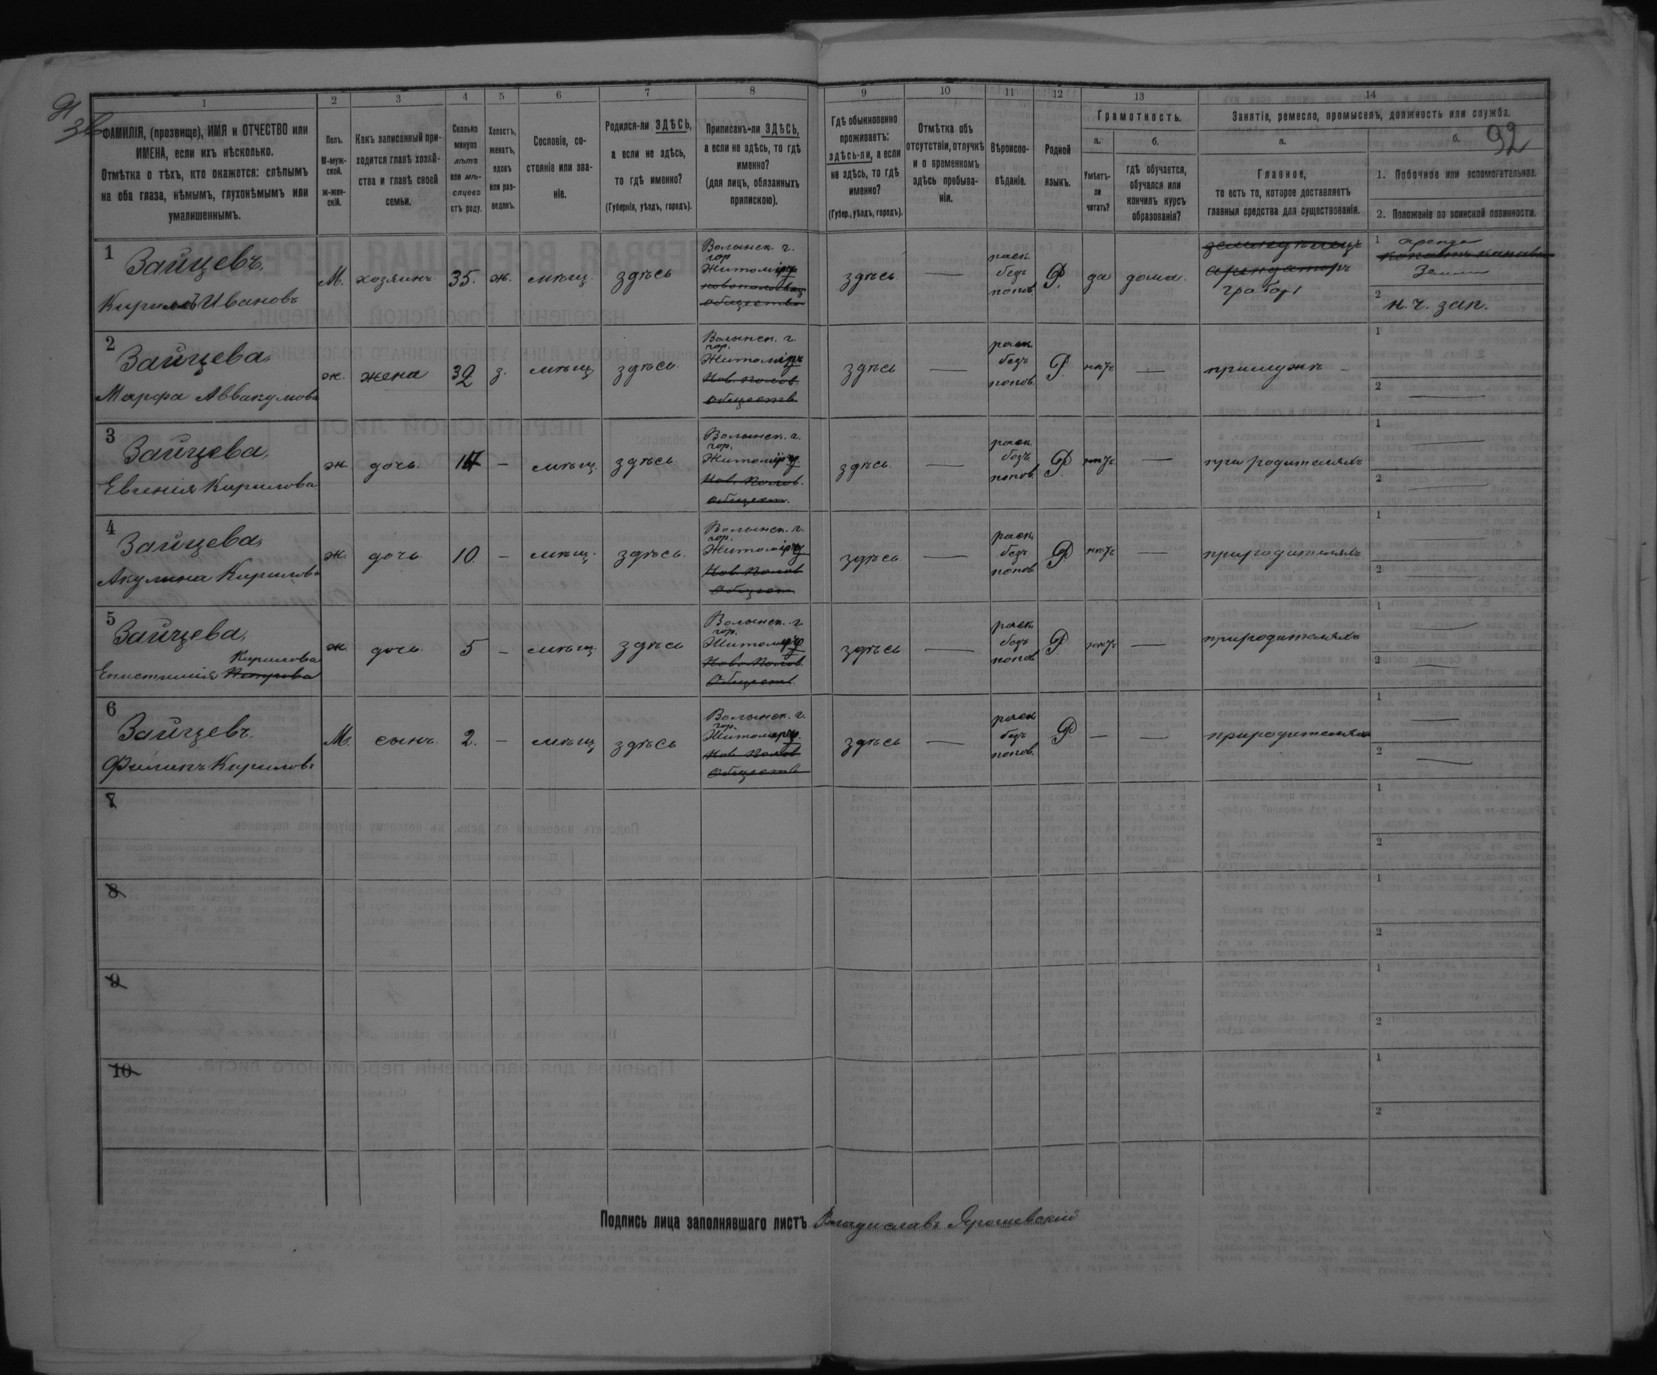 91
92
1 2 3 4 5 6 7 8 9 10 11 12 13 14
ФАМИЛІЯ, (прозвище), ИМЯ и ОТЧЕСТВО или
ИМЕНА, если ихъ нѣсколько.
Отмѣтка о тѣхъ, кто окажется: слѣпымъ
на оба глаза, нѣмымъ, глухонѣмымъ или
умалишеннымъ.
Полъ.
М-муж-
ской.
ж-жен-
скій.
Какъ записанный при-
ходится главѣ хозяй-
ства и главѣ своей
семьи.
Сколько
минуло
лѣтъ
или мѣ-
сяцевъ
отъ роду.
Холостъ,
женатъ,
вдовъ
или раз-
веденъ.
Сословіе, со-
стояніе или зва-
ніе.
Родился-ли ЗДѢСЬ,
а если не здѣсь,
то гдѣ именно?
(Губернія, уѣздъ, городъ).
Приписанъ-ли ЗДѢСЬ,
а если не здѣсь, то гдѣ
именно?
(для лицъ, обязанныхъ
припискою).
Гдѣ обыкновенно
проживаетъ:
здѣсь-ли, а если
не здѣсь, то гдѣ
именно?
(Губер., уѣздъ, городъ).
Отмѣтка объ
отсутствіи, отлучкѣ
и о временномъ
здѣсь пребыва-
ніи.
Вѣроиспо-
вѣданіе.
Родной
языкъ.
Грамотность.
а.
Умѣетъ-
ли
читать?
б.
гдѣ обучается,
обучался или
кончилъ курсъ
образованія?
Занятіе, ремесло, промыселъ, должность или служба.
а.
Главное,
то есть то, которое доставляетъ
главныя средства для существованія.
б.
1. Побочное или вспомогательное.
2. Положеніе по воинской повинности.
1
Зайцевъ
Кирилъ Ивановъ
М. хозяинъ 35. ж. мѣщ. здѣсь
Волынск. г.
гор
Житоміру
общества
здѣсь — раск. безъ попов. Р. да дома.
грабарь
1 аренда
земли
2 н. ч. зап.
2
Зайцева
Марфа Аввакумова
ж. жена 32 з. мѣщ здѣсь.
Волынск. г.
гор.
Житоміру
Нов. Полов.
общества
здѣсь — раск безъ попов Р нѣтъ — примужѣ
1
2 —
3
Зайцева,
Евгенія Кирилова
ж. дочь — мѣщ. здѣсь
Волынск. г.
гор.
Житоміру
Нов. Полов.
здѣсь — раск безъ попов. Р нѣтъ — при родителяхъ
1 —
2 —
4
Зайцева,
Акулина Кирилова
ж. дочь 10. — мѣщ. здѣсь.
Волынск. г.
гор.
Житоміру
Нов. Полов
здѣсь — раск безъ попов Р нѣтъ — природителяхъ
1
2 —
5
Зайцева,
Кирилова
Епистимія
ж. дочь 5 — мѣщ. здѣсь
Волынск. г
гор.
Житоміру
Нов. Полов
здѣсь — раск безъ попов Р нѣтъ — природителяхъ
1 —
2 —
6
Зайцевъ
Филипъ Кириловъ
М. сынъ. 2. — мѣщ здѣсь
Волынск. г.
гор.
Житоміру
Нов. Полов
здѣсь — раск безъ попов Р — — природителяхъ
1 —
2 —
7
1
2
8
1
2
9
1
2
10
1
2
Подпись лица заполнявшаго листъ Владиславъ Ярошевскій